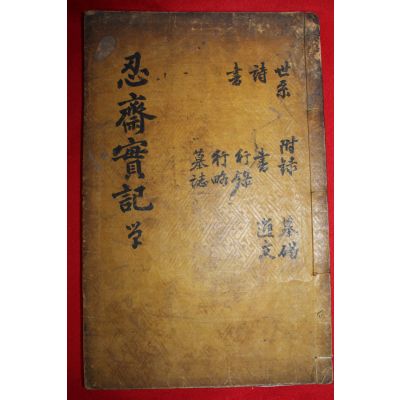 世系
詩
書
附録
書
行錄
行略
墓誌
墓碣
忍齋實記